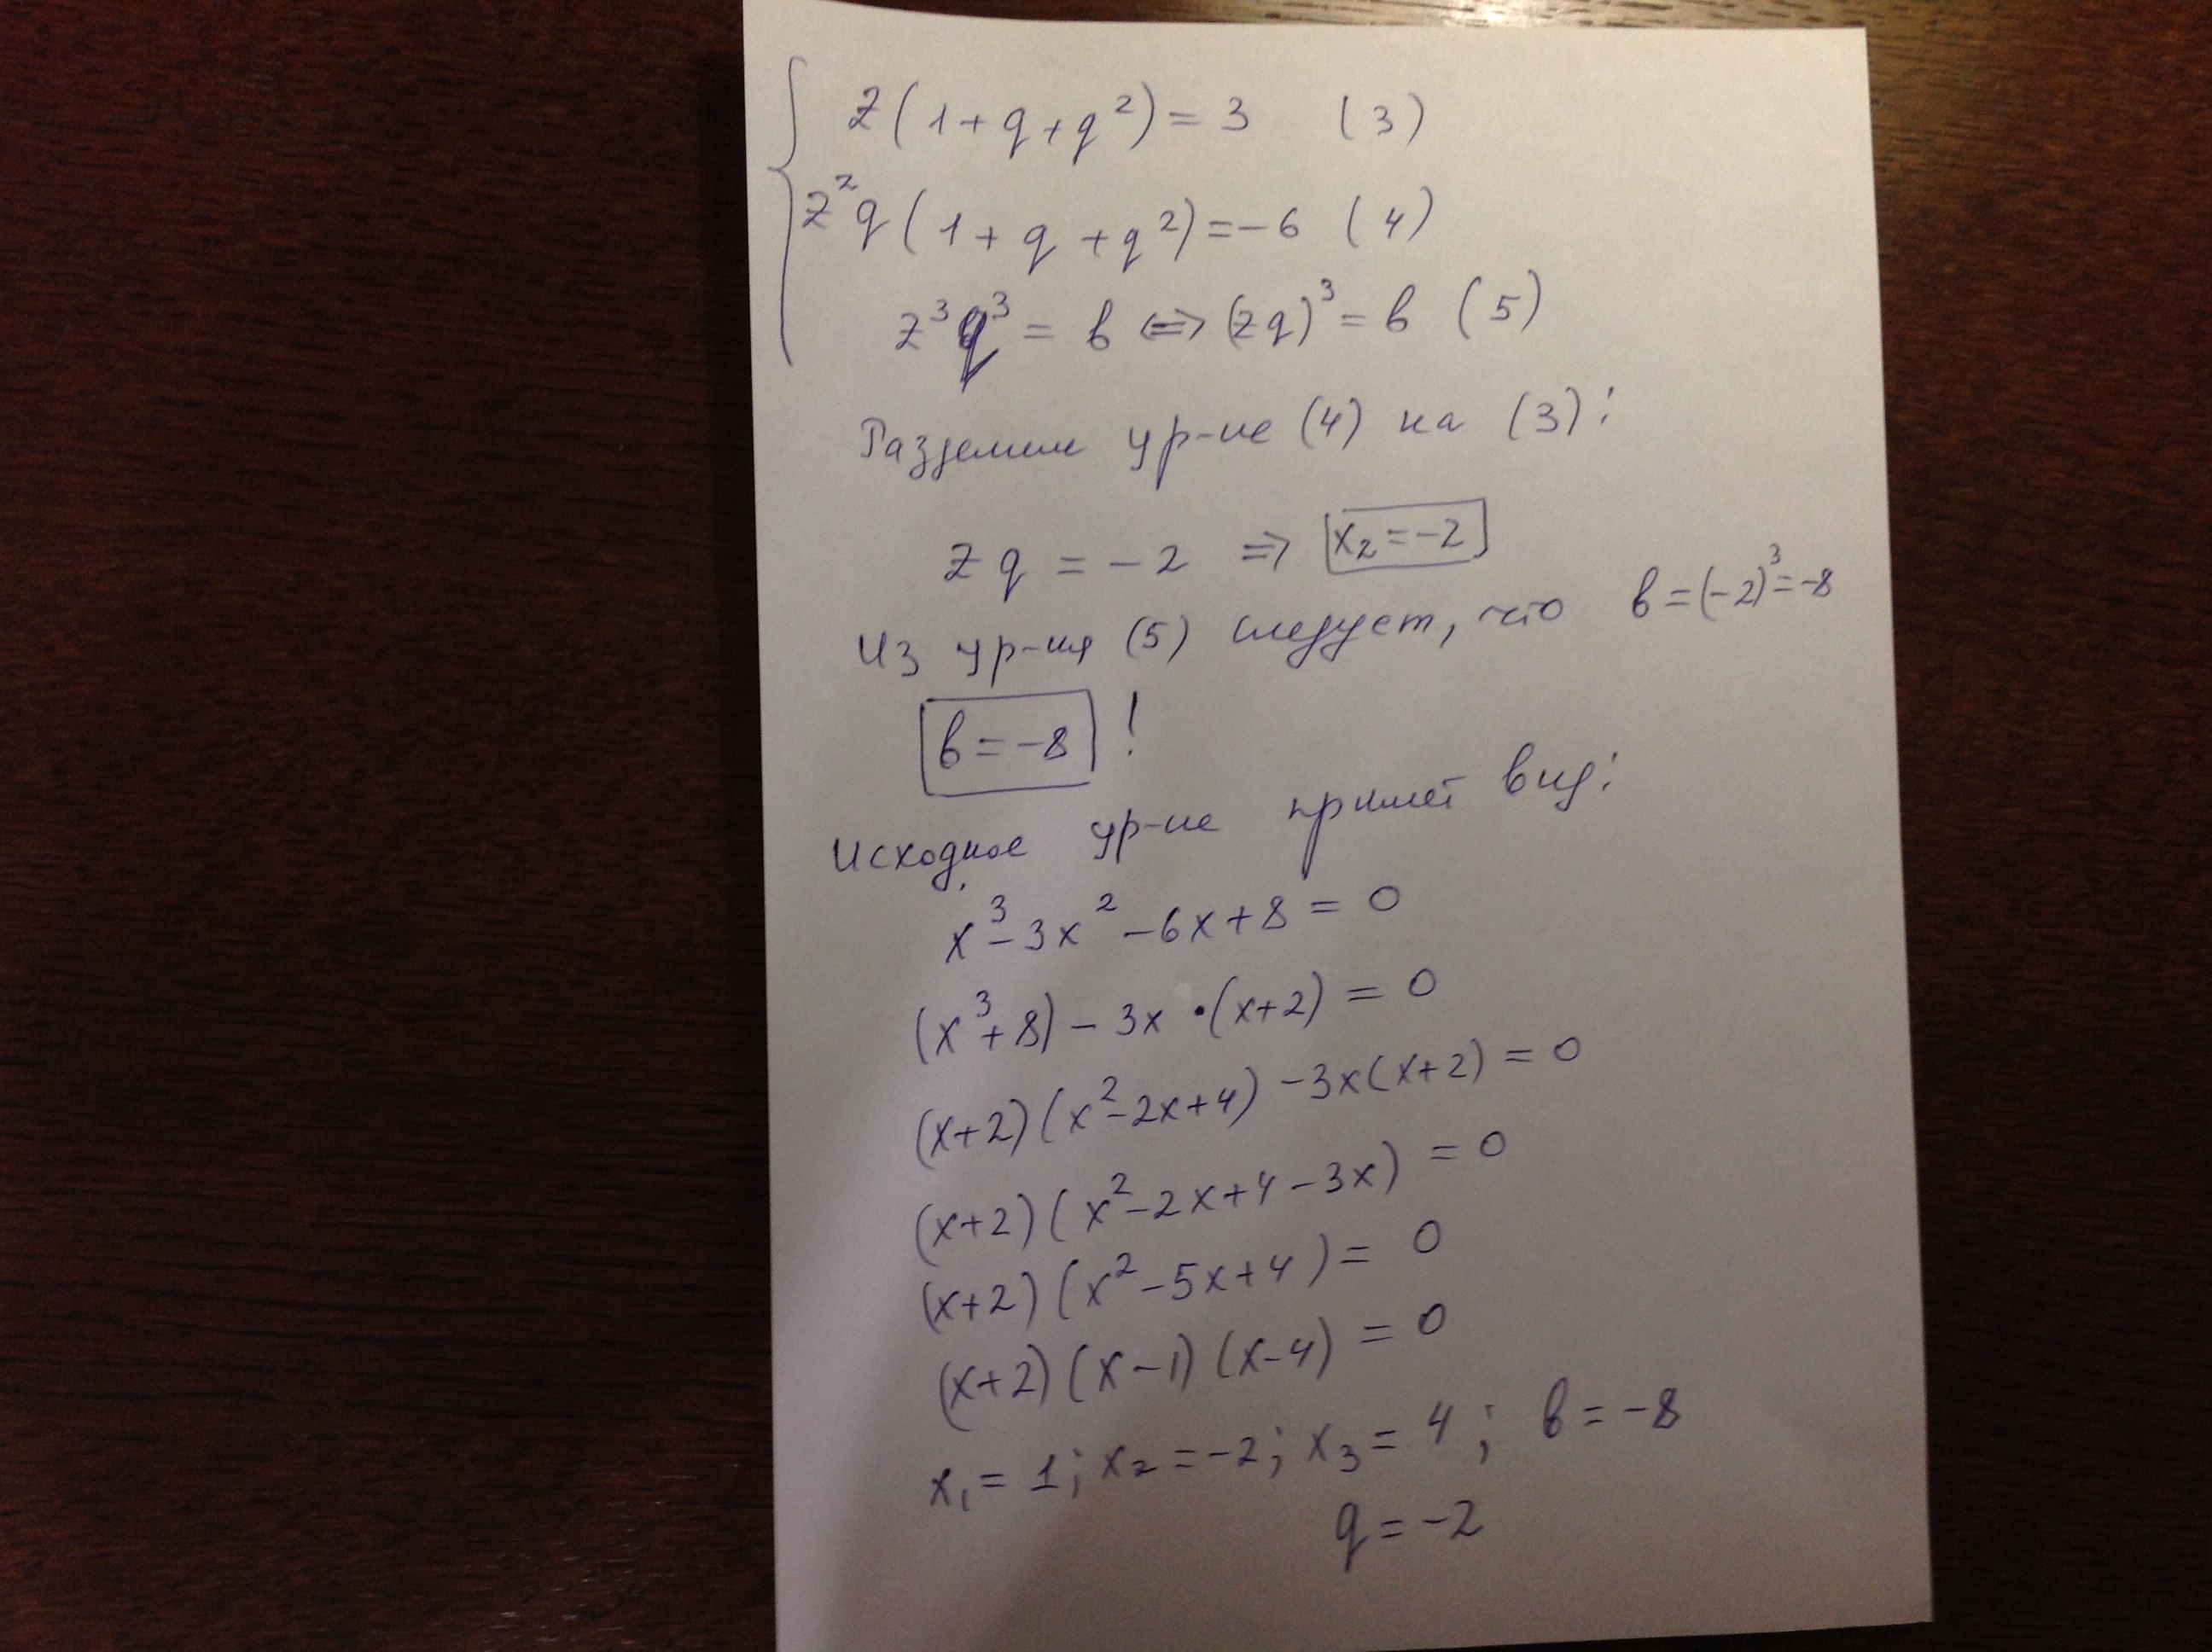 z(1+q+q²)=3 (3)
z²q(1+q+q²)=-6 (4)
z³q³=в <=> (zq)³=в (5)
Разделим ур-ие (4) на (3):
zq=-2 => x₂=-2
Из ур-ия (5) следует, что в=(-2)³=-8
в=-8 !
Исходное ур-ие примет вид:
x³-3x²-6x+8=0
(x³+8)-3x·(x+2)=0
(x+2)(x²-2x+4)-3x(x+2)=0
(x+2)(x²-2x+4-3x)=0
(x+2)(x²-5x+4)=0
(x+2)(x-1)(x-4)=0
x₁=1; x₂=-2; x₃=4; в=-8
q=-2